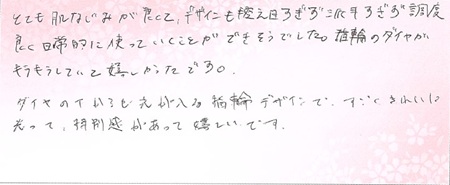 とても肌なじみが良くて、デザインも控え目すぎず派手すぎず調度
良く日常的に使っていくことができそうでした。指輪のダイヤが
キラキラしていて嬉しかったです。
ダイヤの下からも光が入る指輪デザインで、すごくきれいに
光って、特別感があって嬉しいです。